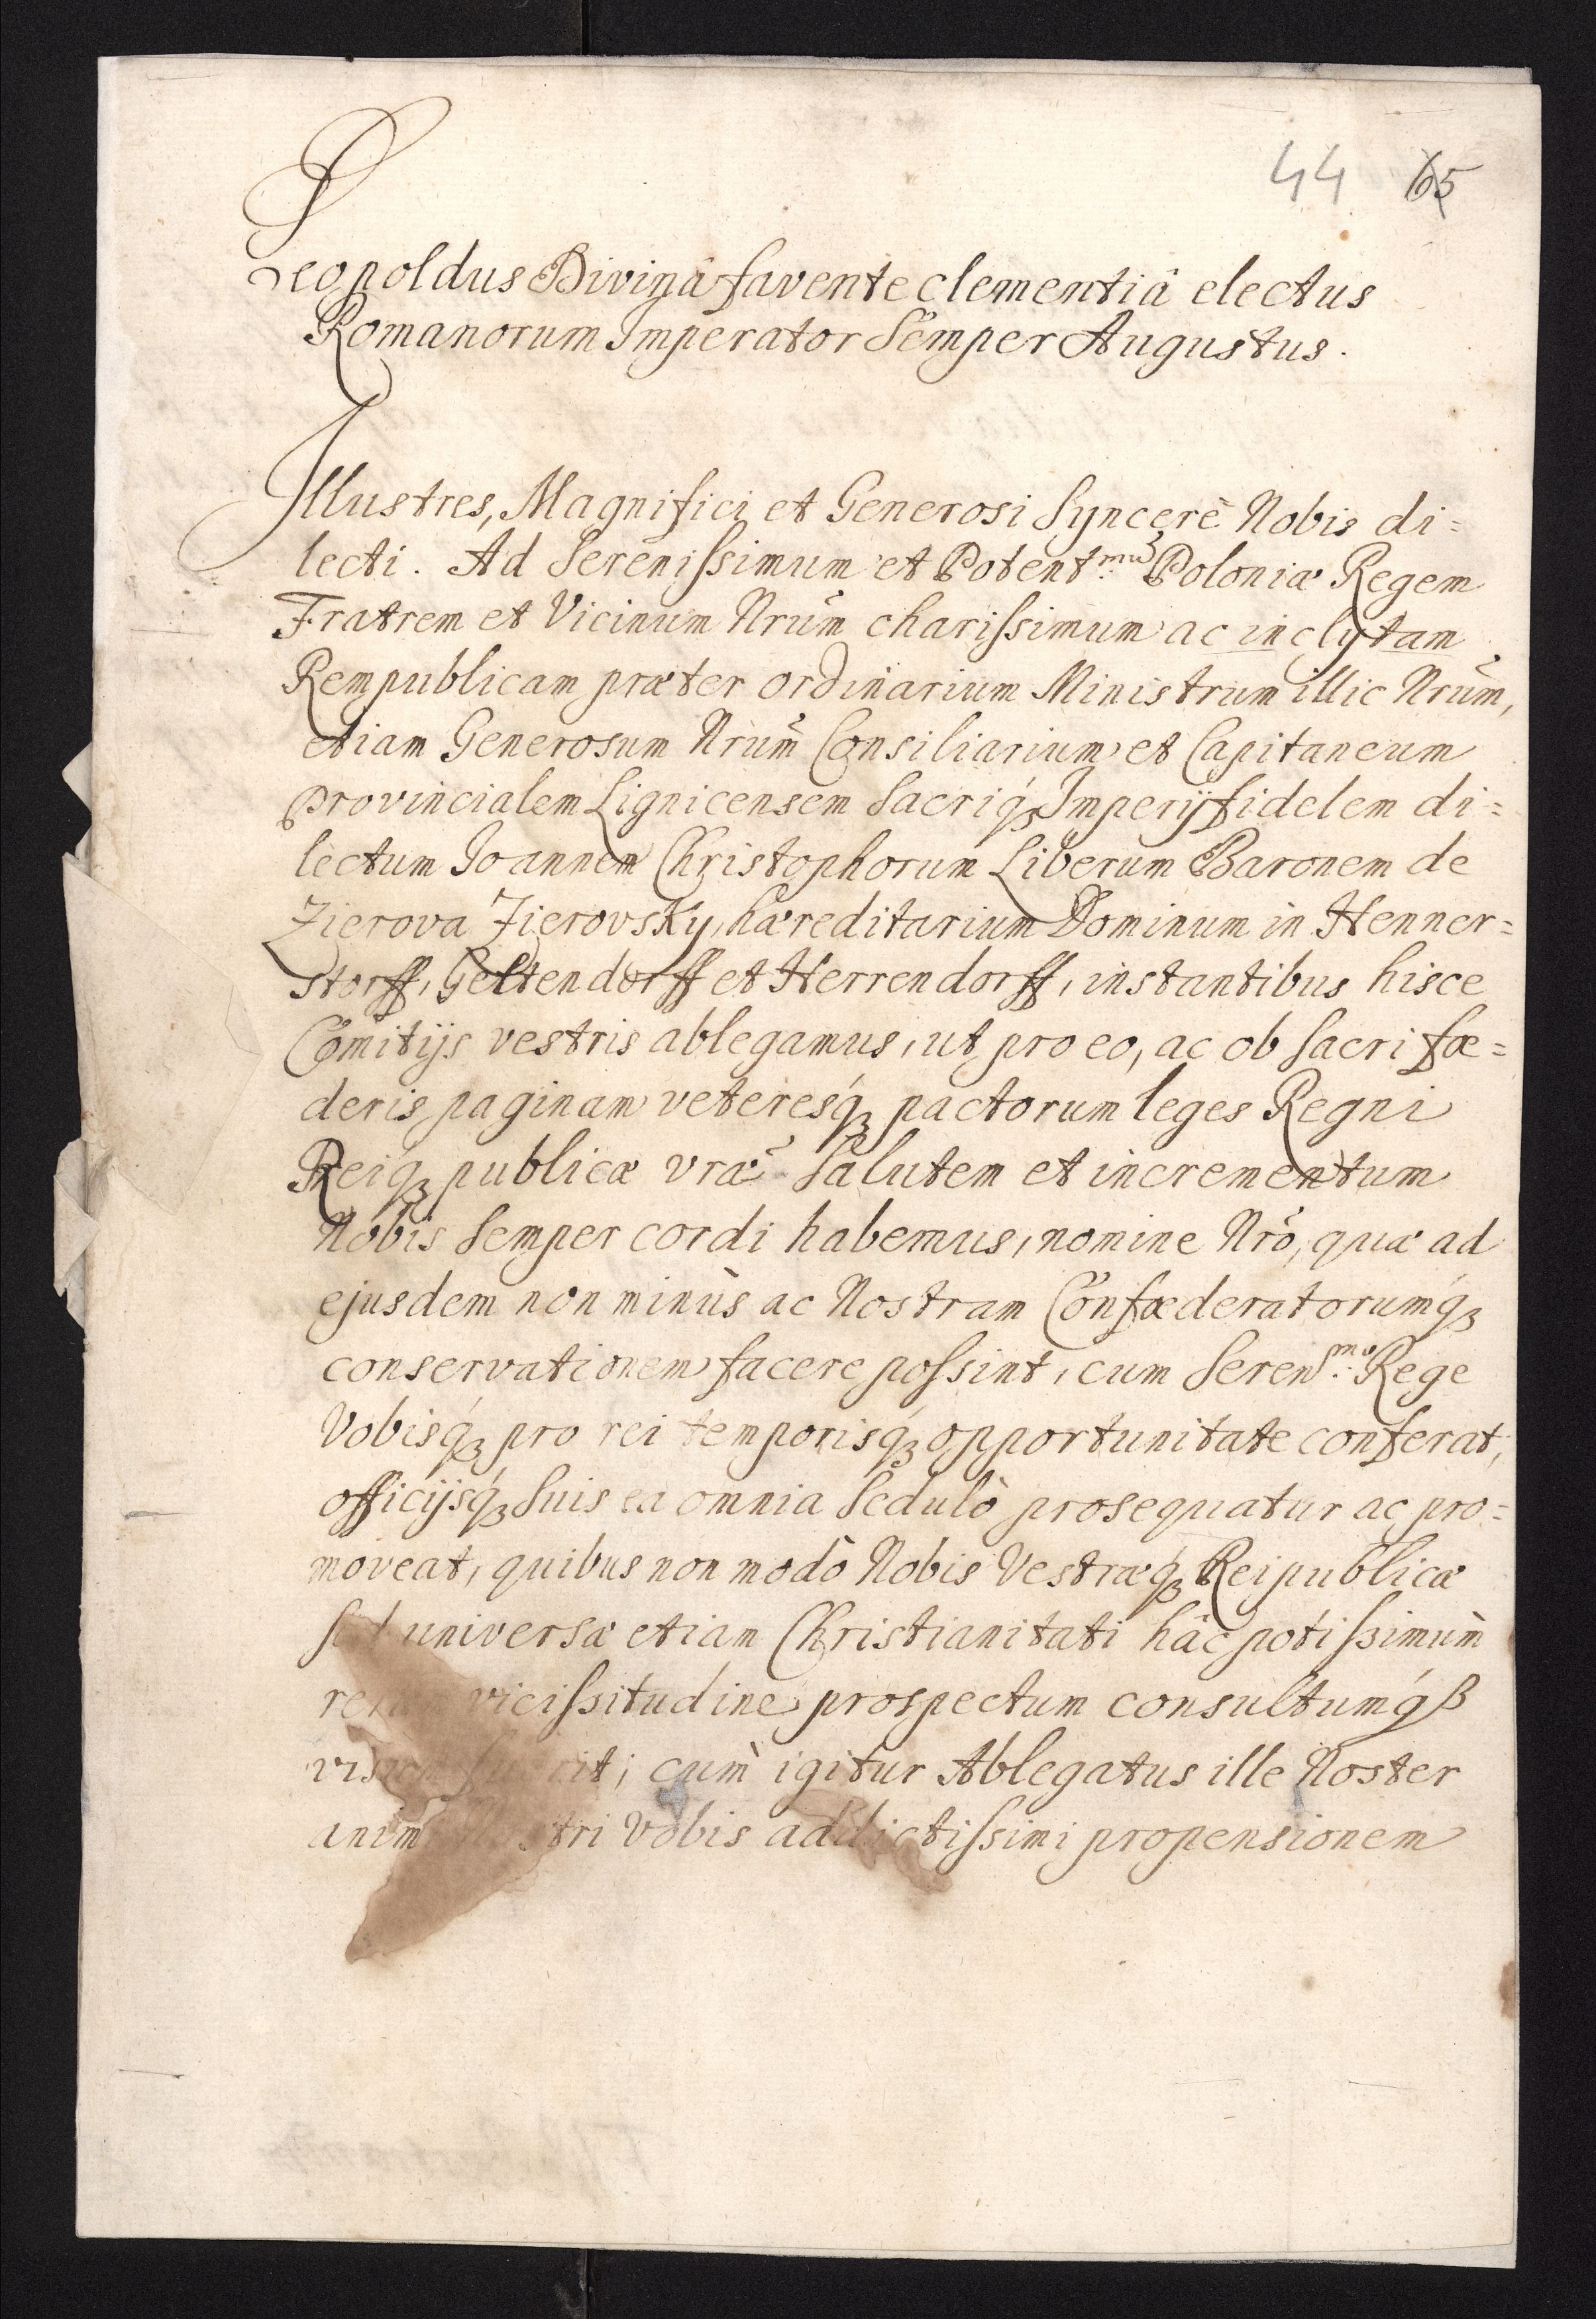 44 65
Leopoldus Divinâ favente clementiâ electus
Romanorum Imperator Semper Augustus.
Illustres, Magnifici et Generosi Syncerè Nobis di=
lecti. Ad Serenissimum et Potent.mũ Poloniæ Regem
Fratrem et Vicinum Nrum̃ charissimum ac inclytam
Rempublicam præter ordinarium Ministrum illic Nrum̃,
etiam Generosum Nrum̃ Consiliarium et Capitaneum
provincialem Lignicensem Sacriq́ꝫ Imperij fidelem di=
lectum Joannem Christophorum Liberum Baronem de
Zierova Zierovsky, hæreditarium Dominum in Henner=
storff, Geltendorff et Herrendorff, instantibus hisce
Comitijs vestris ablegamus, ut pro eo, ac ob Sacri fœ=
deris paginam veteresq́ꝫ pactorum leges Regni
Reiqꝫ publicæ vræ̃ Salutem et incrementum
Nobis Semper cordi habemus, nomine Nrõ, quæ ad
ejusdem non minùs ac Nostram Confœderatorumq́ꝫ
conservationem facere possint, cum Seren.mo Rege
Vobisq́ꝫ pro rei temporisq́ꝫ opportunitate conferat,
officijsq́ꝫ Suis ea omnia Sedulò prosequatur ac pro=
moveat, quibus non modò Nobis Vestræq́ꝫ Reipublicæ
sed universæ etiam Christianitati hâc potissimùm
vicissitudine prospectum consultumq́ꝫ
cùm igitur Ablegatus ille Noster
Vobis addictissimi propensionem